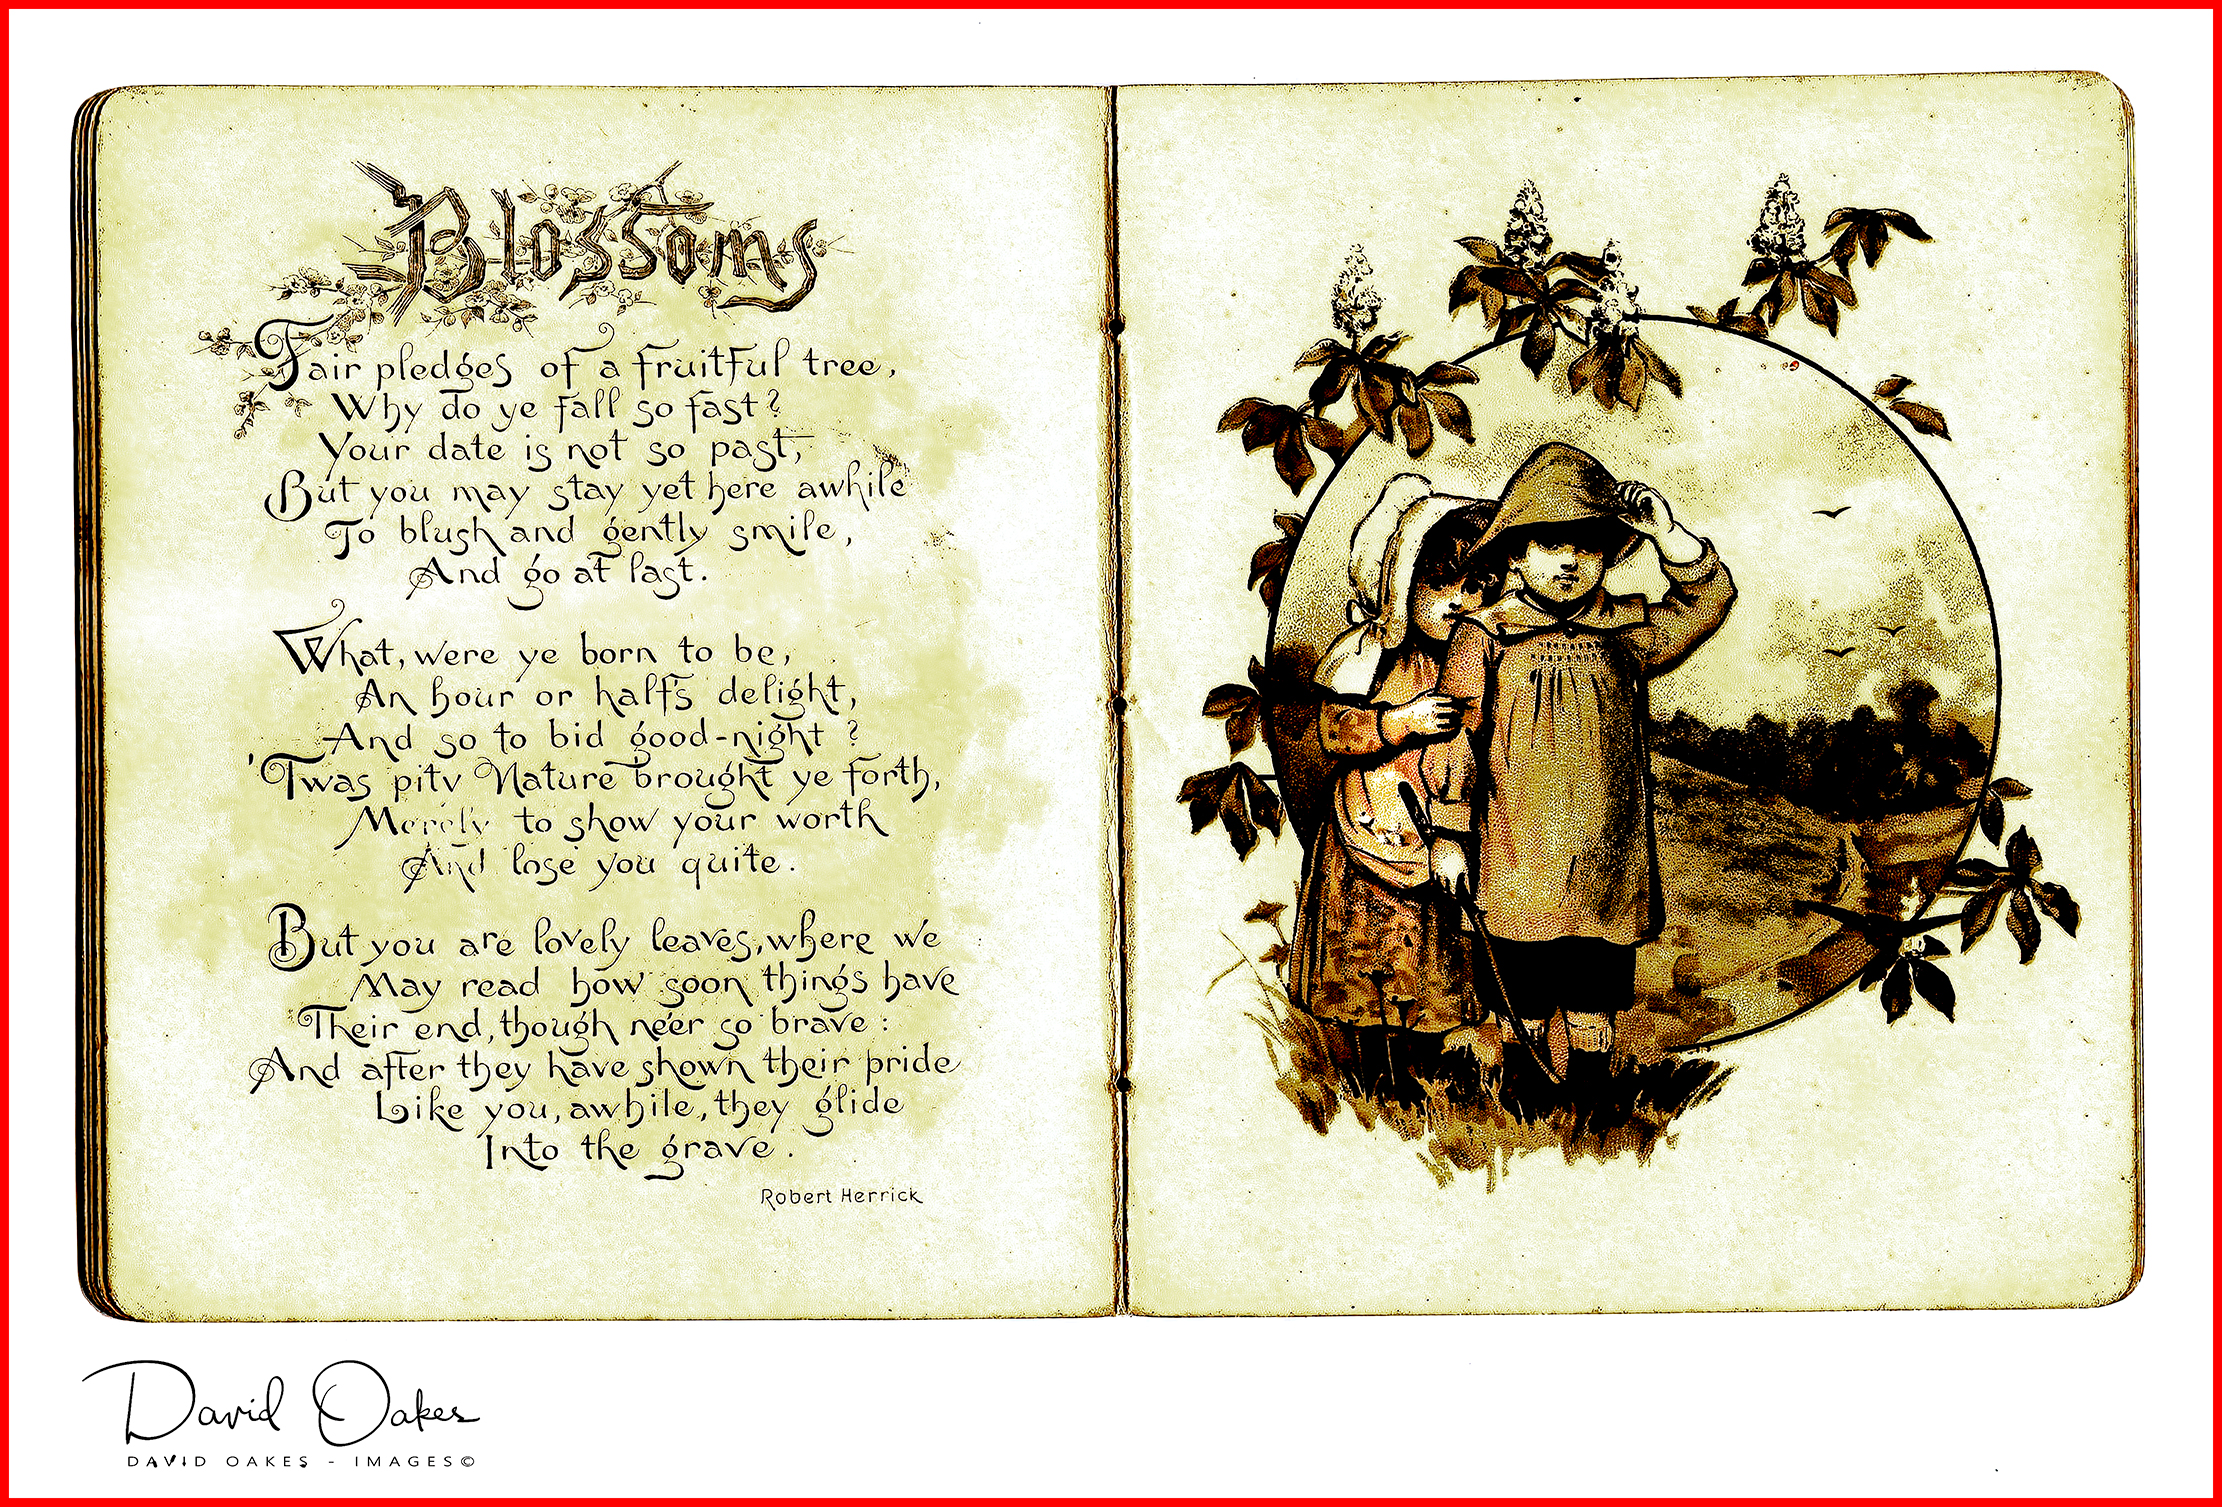 Blossoms
Fair pledges of a fruitful tree,
Why do ye fall so fast?
Your date is not so past,
But you may stay yet here awhile
To blush and gently smile,
And go at last.
What, were ye born to be,
An hour or half's delight,
And so to bid good-night?
'Twas pity Nature brought ye forth,
Merely to show your worth
And lose you quite.
But you are lovely leaves, where we
May read how soon things have
Their end, though ne'er so brave:
And after they have shown their pride
Like you, awhile, they glide
Into the grave.
Robert Herrick
David Oakes
DAVID OAKES - IMAGES©